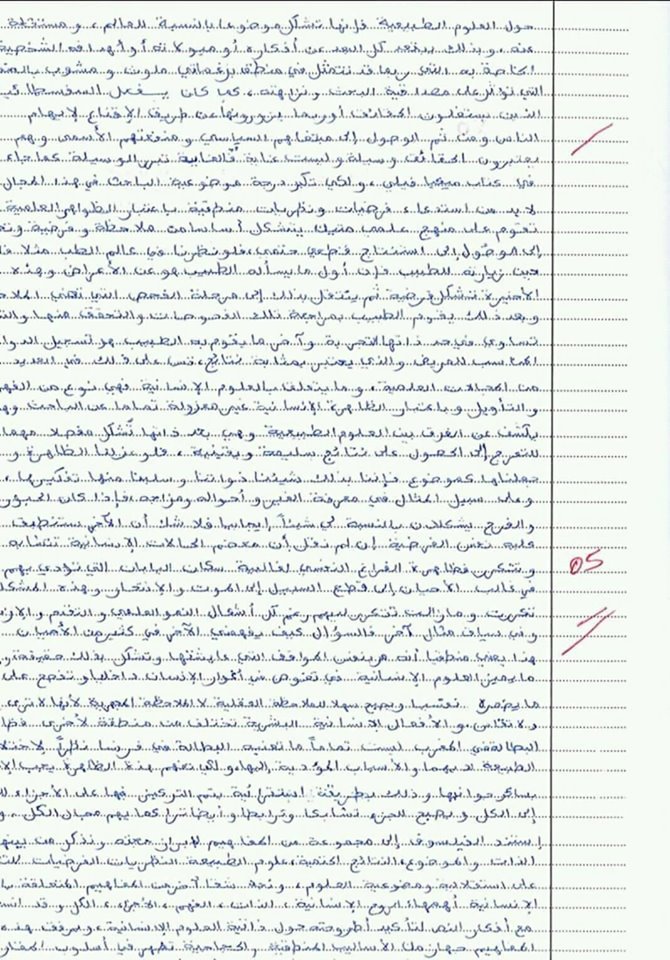 حول العلوم الطبيعية فإنها تشكل موضوعا بالنسبة للعالم، ومستقلة
عنه، وبذلك يبتعد كل البعد عن أفكاره أو ميولاته أو أهدافه الشخصية
الخاصة به التي ربما قد تتمثل في منطق برغماتي ملوث ومشوب
التي تؤثر على مصداقية البحث ونزاهته، كما كان يفعل
الذين يستغلون الحقائق أو ربما يزورونها عن طريق الإقناع لإيهام
الناس ومن ثم الوصول إلى مبتغاهم السياسي ومنفعتهم الأسمى وهم
يعتبرون الحقائق وسيلة وليست غاية فالغاية تبرر الوسيلة كما جاء
في كتاب ميكيافيلي، ولكي تكبر درجة موضوعية الباحث في هذا المجال
لا بد من استدعاء فرضيات ونظريات منطقية باعتبار الظواهر العلمية
تقوم على منهج علمي متين يتشكل أساسا من ملاحظة وفرضية
إلى موصول إلى استنتاج قطعي حتمي، فلو نظرنا في عالم الطب مثلا
حين زيارته للطبيب فإن أول ما يسأله الطبيب هو عن الأعراض وهذه
الأخيرة تشكل فرضية ثم ينتقل بذلك إلى مرحلة الفحص التي تعني
وبعد ذلك يقوم الطبيب بمراجعة تلك الفحوصات والتحقق منها
تساوي في حد ذاتها التجربة وآخر ما يقوم به الطبيب هو تسجيل
المناسب للمريض والذي يعتبر بمثابة نتائج، قس على ذلك في العديد
من المجالات العلمية، وما يتعلق بالعلوم الإنسانية فهي نوع من الفهم
والتأويل وباعتبار الظاهرة الإنسانية غير معزولة تماما عن الباحث
يكشف عن الفرق بين العلوم الطبيعية وهي بحد ذاتها تشكل مفصلا مهما
للتعرج إلى الحصول على نتائج سليمة ويقينية، فلو عزلنا الظاهرة
جعلناها كموضوع فإننا بذلك شيئنا ذواتنا وسلبنا منها تفكيرها،
وعلى سبيل المثال في معرفة الغير وأحواله ومزاجه، فإذا كان
والفرح يشكلان بالنسبة لي شيئا إيجابيا فلا شك أن الآخر ستنطبق
عليه نفس الفرضية إن لم نقل أن معظم الحالات الإنسانية تتشابه
وتتكرر فظاهرة الفراغ النفسي لغالبية سكان اليابان التي تؤدي بهم
في غالب الأحيان إلى قطع السبيل إلى الموت والانتحار وهذه
تكررت وما زالت تتكرر لديهم رغم كل أشكال النمو العلمي والتقدم
وفي سياق مثال آخر فالسؤال كيف يفهمني الآخر في كثير من الأحيان
هذا يعني منطقيا أنه مر بنفس المواقف التي عايشتها وتشكل بذلك حقيقة
ما يميز العلوم الإنسانية، فتغوص في أغوار الإنسان داخليا وتفصح على
ما يضمره نفسيا ويصبح سهلا للملاحظة العقلية لا الملاحظة المجهرية لأنها لا ترى
ولا تقاس، والأفعال الإنسانية البشرية تختلف من منطقة لأخرى
البطالة في المغرب ليست تماما ما تعنيه البطالة في فرنسا نظرا
الطبيعة لديهما والأسباب المؤدية إليها، ولكي تفهم هذه الظاهرة يجب
بسائر جوانبها وذلك بطريقة يتم التركيز فيها على الأجزاء
إلى الكل، ويصبح الجزء تشابكا وترابطا وأيضا تراكما يهم مجال الكل
استند الفيلسوف إلى مجموعة من المفاهيم لإبراز حجته ونذكر من بينها
الذات والموضوع، النتائج الحتمية، علوم الطبيعة النظريات الفرضيات
على استقلالية وموضوعية العلوم، ونجد شقا آخر من المفاهيم المتعلقة
الإنسانية أهمها: الروح الإنسانية، الذات، الفهم، الأجزاء، الكل، وقد
مع أفكار النص لتأكيد أطروحته حول ذاتية العلوم الإنسانية، وبرفق هذه
المفاهيم جهاز من الأساليب المنطقية والحجاجية تظهر في أسلوب
05